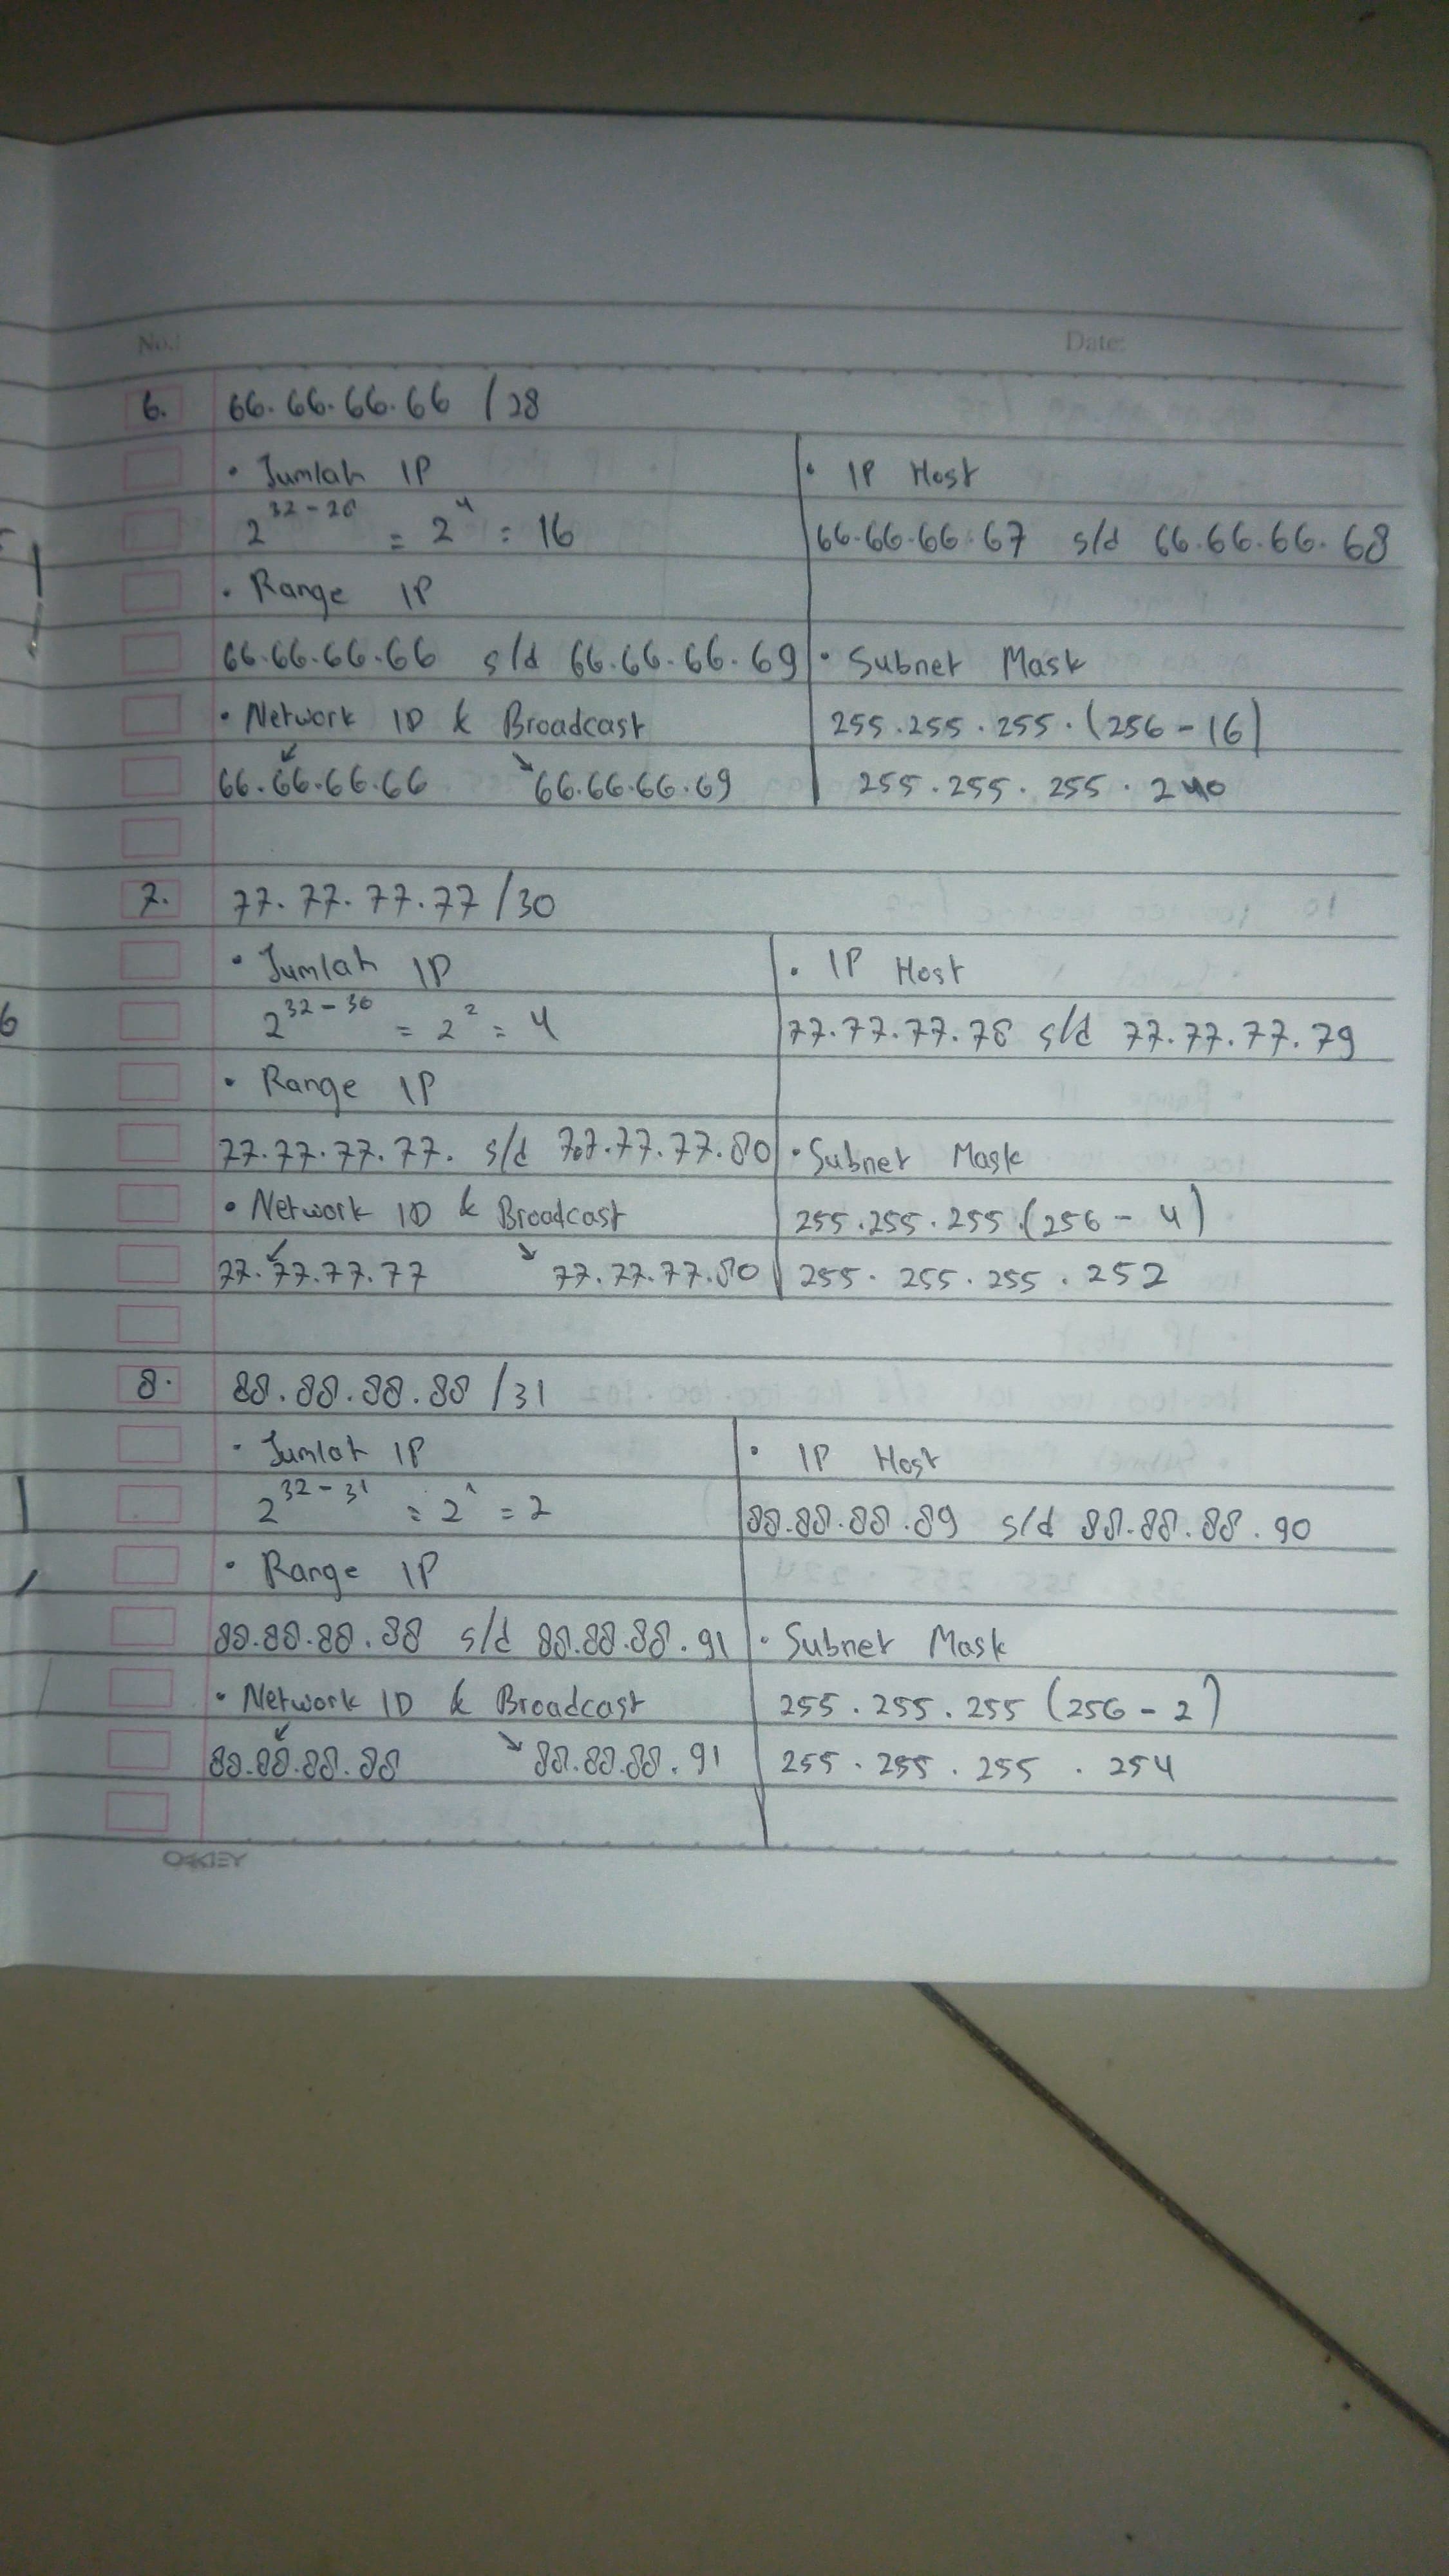 No.:
Date:
6. 66.66.66.66 /28
• Jumlah IP
2^32-28 = 2^4 = 16
• Range IP
66.66.66.66 s/d 66.66.66.69
• Network ID & Broadcast
66.66.66.66 66.66.66.69
• IP Host
66.66.66.67 s/d 66.66.66.68
• Subnet Mask
255.255.255.(256-16)
255.255.255.240
7. 77.77.77.77 /30
• Jumlah IP
2^32-30 = 2^2 = 4
• Range IP
77.77.77.77. s/d 77.77.77.80
• Network ID & Broadcast
77.77.77.77 77.77.77.80
• IP Host
77.77.77.78 s/d 77.77.77.79
• Subnet Mask
255.255.255.(256-4)
255.255.255.252
8. 88.88.88.88 /31
• Jumlah IP
2^32-31 = 2^1 = 2
• Range IP
88.88.88.88 s/d 88.88.88.91
• Network ID & Broadcast
88.88.88.88 88.88.88.91
• IP Host
88.88.88.89 s/d 88.88.88.90
• Subnet Mask
255.255.255 (256-2)
255.255.255.254
OKEY